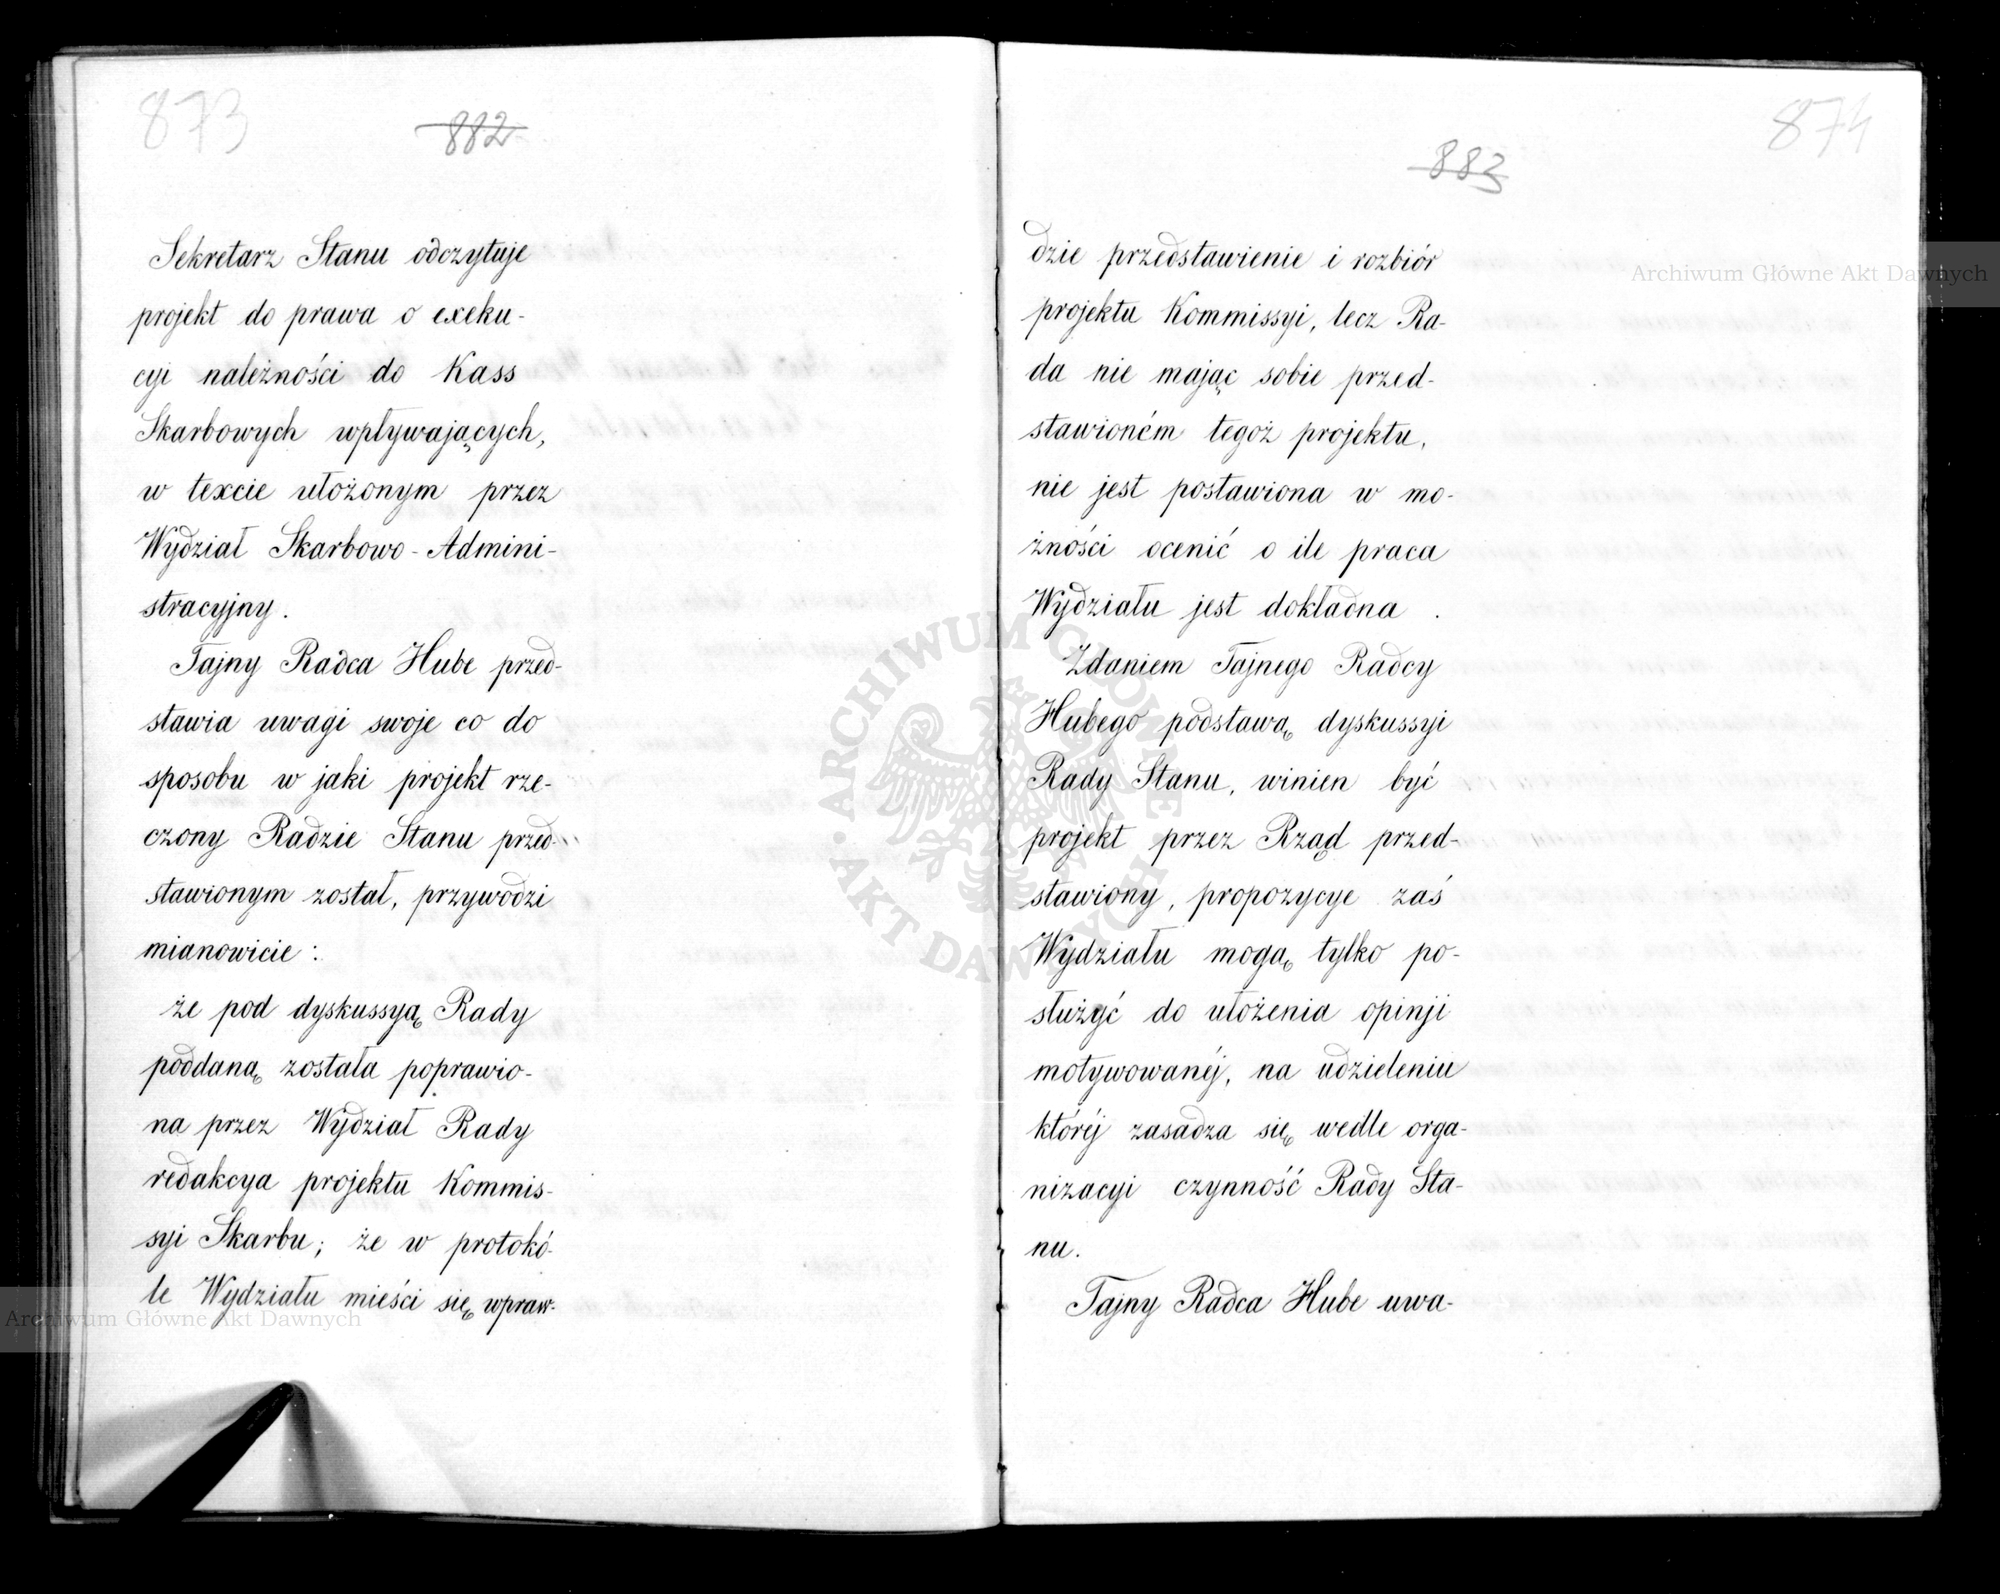 873
882
Sekretarz Stanu odczytuje
projekt do prawa o exeku-
cyi należności do Kass
Skarbowych wpływających,
w texcie ułożonym przez
Wydział Skarbowo-Admini-
stracyjny.
Tajny Radca Hube przed-
stawia uwagi swoje co do
sposobu w jaki projekt rze-
czony Radzie Stanu przed-
stawionym został, przywodzi
mianowicie:
że pod dyskussyą Rady
poddaną została poprawio-
na przez Wydział Rady
redakcya projektu Kommis-
syi Skarbu; że w protokó-
le Wydziału mieści się wpraw-
874
883
dzie przedstawienie i rozbiór
projektu Kommissyi, lecz Ra-
da nie mając sobie przed-
stawioném tegoż projektu,
nie jest postawiona w mo-
żności ocenić o ile praca
Wydziału jest dokładna.
Zdaniem Tajnego Radcy
Hubego podstawą dyskussyi
Rady Stanu, winien być
projekt przez Rząd przed-
stawiony, propozycye zaś
Wydziału mogą tylko po-
służyć do ułożenia opinji
motywowanéj, na udzieleniu
któréj zasadza się wedle orga-
nizacyi czynność Rady Sta-
nu.
Tajny Radca Hube uwa-
Archiwum Główne Akt Dawnych
Archiwum Główne Akt Dawnych
ARCHIWUM GŁÓWNE AKT DAWNYCH